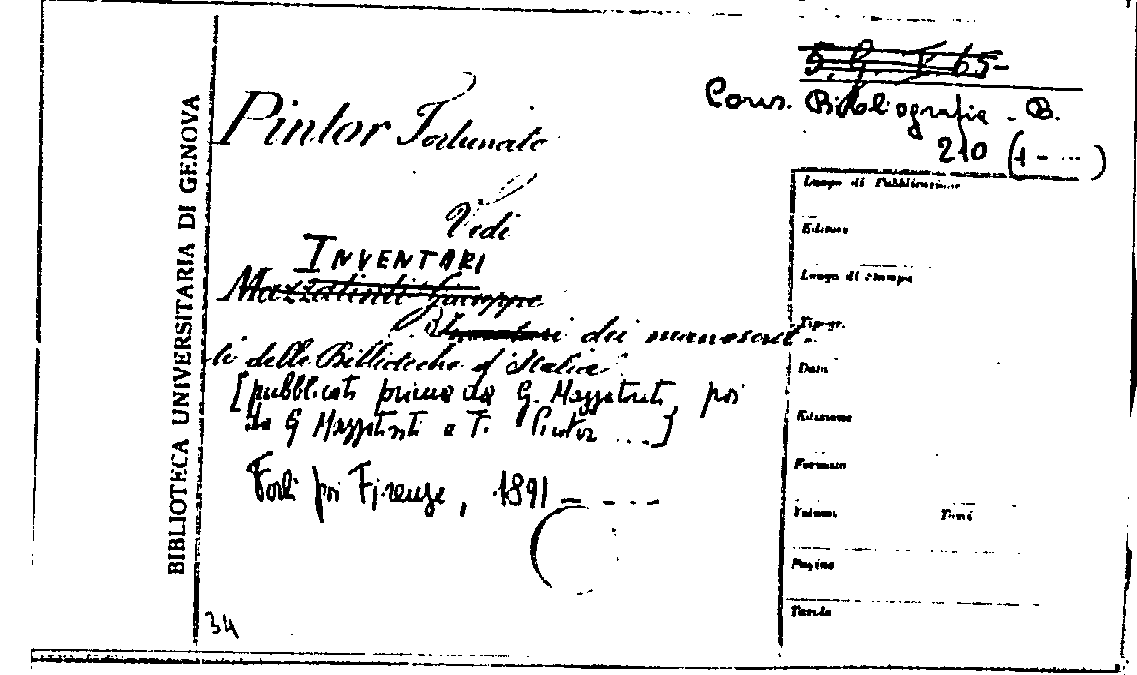 BIBLIOTECA UNIVERSITARIA DI GENOVA
5. G. I 65
Cons. Bibliografia - B.
210 (1 - ...)
Pintor Fortunato
Vedi
INVENTARI
Mazzatinti Giuseppe
Inventari dei manoscrit-
ti delle Biblioteche d'Italia
[pubblicati prima da G. Mazzatinti, poi
da G Mazzatinti e F. Pintor ...]
Forlì poi Firenze, 1891 - ....
34
Luogo di Pubblicazione
Editore
Luogo di stampa
Tipogr.
Data
Edizione
Formato
Volumi Tomi
Pagine
Tavole